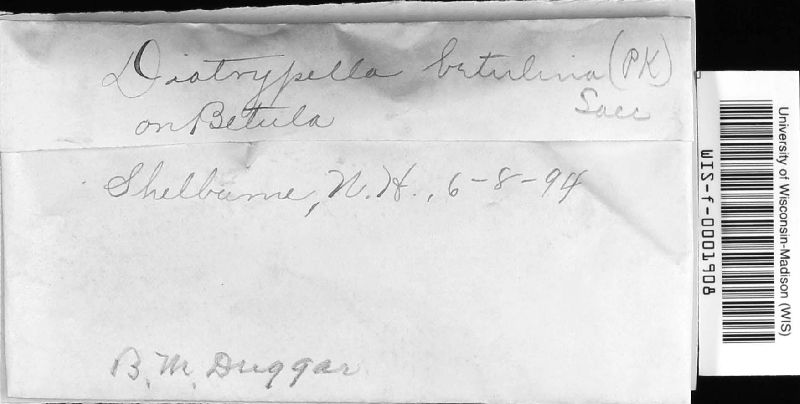 Diatrypella betulina (PK)
Sacc
on Betula
Shelburne, N.H., 6-8-94
B. M. Duggar
University of Wisconsin-Madison (WIS)
WIS-f-0001908